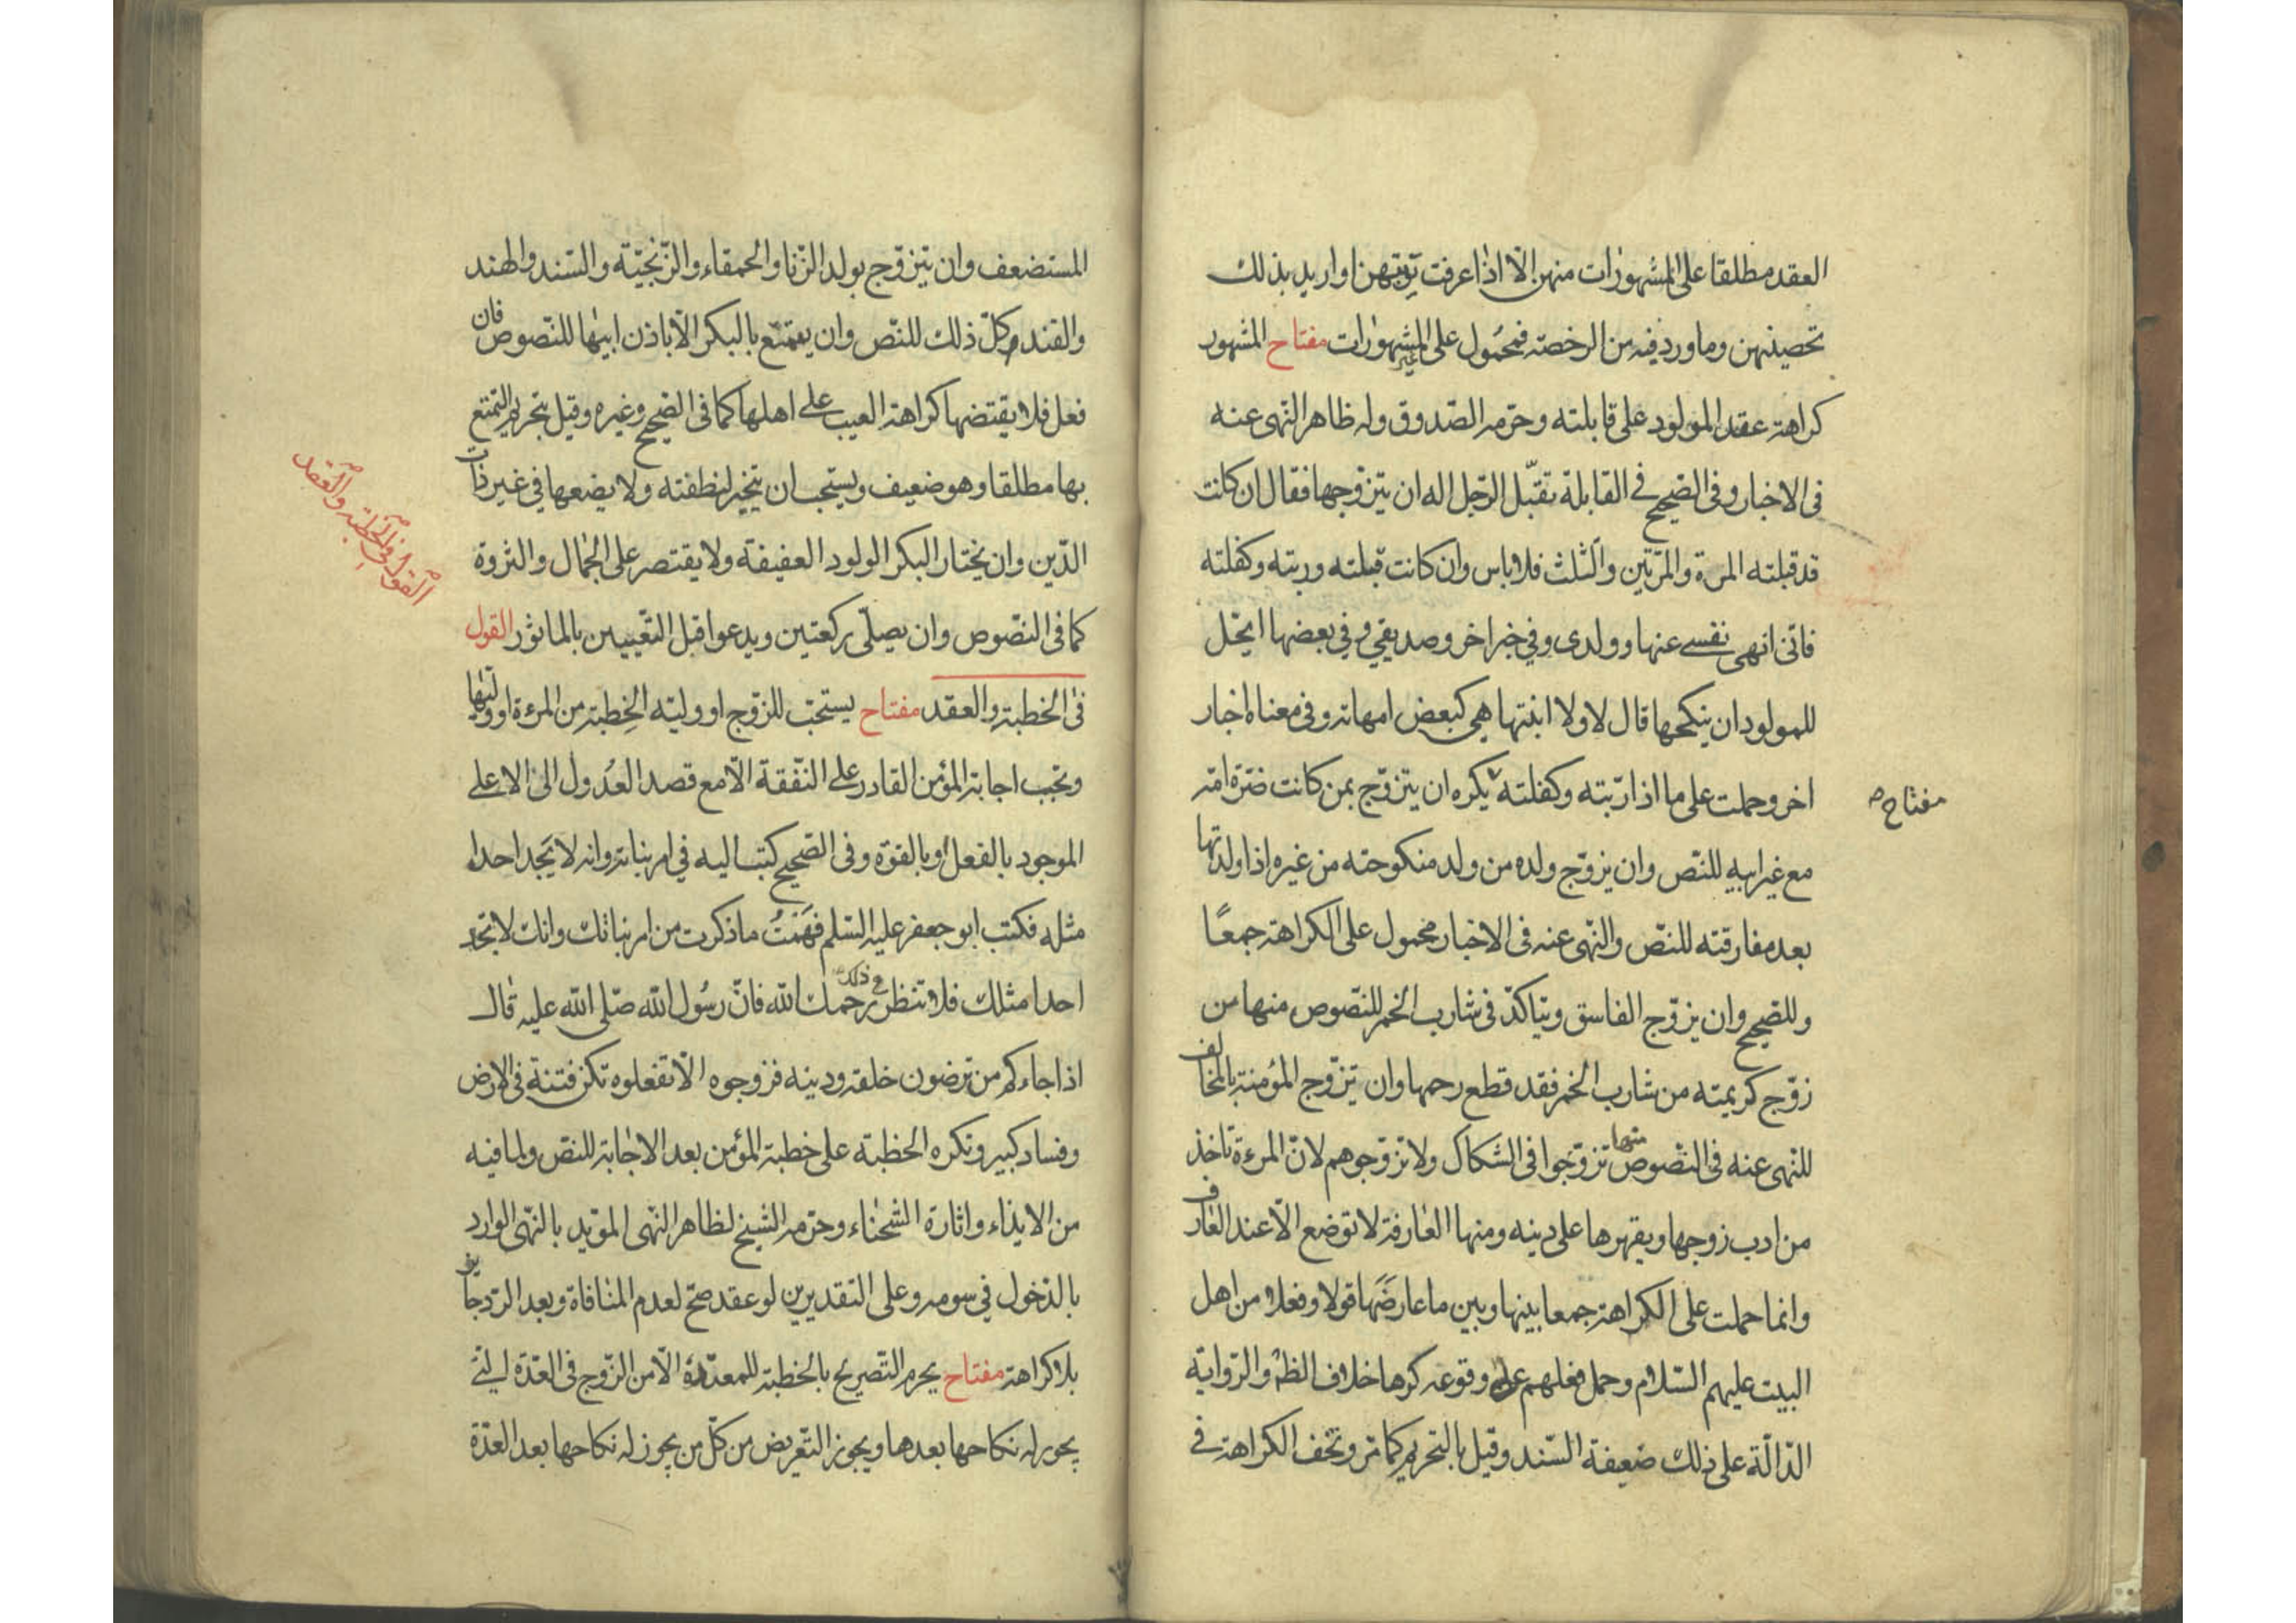 العقد مطلقا على المشهورات منهن الّا اذا عرفت توبتهن او اريد بذلك
تحصينهن وما ورد فيه من الرخصته فمحمول على غير المشهورات مفتاح المشهور
كراهة عقد المولود على قابلته وحرّمه الصّدوق وله ظاهر النّهى عنه
فى الاخبار وفى الصّحيح فى القابلة تقبّل الرّجل اله ان يتزوّجها فقال ان كانت
قد قبلته المرة والمرّتين والثلث فلا باس وان كانت قبلته وربته وكفلته
فانى انهى نفسى عنها وولدى وفى خبر اخر وصديقي وفى بعضها ايحّل
للمولود ان ينكحها قال لا ولا ابنتها هى كبعض امهاته وفى معناه اخبار
اخر وحملت على ما اذا ربّته وكفلته يكره ان يتزوّج بمن كانت ضرّة امّه
مفتاح
مع غير ابيه للنّص وان يزوّج ولده من ولد منكوحته من غيره اذا ولدتها
بعد مفارقته للنّص والنّهى عنه فى الاخبار محمول على الكراهة جمعًا
وللصّحيح وان يزوّج الفاسق ويتاكدّ فى شارب الخمر للنّصوص منها من
زوّج كريمته من شارب الخمر فقد قطع رحمها وان تزوّج المؤمنة بالمخالف
للنّهى عنه فى النّصوص منها تزوّجوا فى الشكاك ولا تزوّجوهم لانّ المرءة تاخذ
من ادب زوجها ويقهرها على دينه ومنها العارفة لا توضع الّا عند العارف
وانما حملت على الكراهة جمعا بينها وبين ما عارضَها قولا وفعلا من اهل
البيت عليهم السّلام وحمل فعلهم على وقوعه كرها خلاف الظّ والرّواية
الدّالّة على ذلك ضعيفة السّند وقيل بالتحريم كما مرّ وتخف الكراهة فى
المستضعف وان يتزوّج بولد الزّنا والحمقاء والزّنجيّة والسّند والهند
والقند وكلّ ذلك للنّص وان يتمتّع بالبكر الّا باذن ابيها للنّصوص فان
فعل فلا يقتضها كراهة العيب على اهلها كما فى الصّحيح وغيره وقيل بتحريم التمتع
بها مطلقا وهو ضعيف ويستحب ان يتخير لنطفته ولا يضعها فى غير ذات
الدّين وان يختار البكر الولود العفيفة ولا يقتصر على الجمال والثروة
القول فى الخطبة والعقد
كما فى النّصوص وان يصلّى ركعتين ويدعوا قبل التّعيين بالماثور القول
فى الخطبة والعقد مفتاح يستحبّ للزّوج او وليّه الخِطبة من المرءة او وليّها
وتجب اجابة المؤمن القادر على النّفقة الّا مع قصد العُدول الى الاعلى
الموجود بالفعل او بالقوّة وفى الصّحيح كتب اليه فى امر بناته وانه لا يَجد احدا
مثله فكتب ابو جعفر عليه السّلم فهَمْتُ ما ذكرت من امر بناتك وانك لا تجد
احدا مثلك فلا تنظر فى ذلك رحمك الله فانّ رسُول الله صلّى الله عليه قال
اذا جاءكم من ترضون خلقه ودينه فزوجوه الّا تفعلوه تكن فتنة فى الارض
وفساد كبير وتكره الخطبة على خطبة المؤمن بعد الاجابة للنص ولما فيه
من الايذاء واثارة الشحناء وحرّمه الشيخ لظاهر النّهى المؤيد بالنّهى الوارد
بالدّخول فى سومه وعلى التقديرين لو عقد صحّ لعدم المنافاة وبعد الرّد جايز
بلا كراهة مفتاح يحرم التّصريح بالخطبة للمعتدّة الّا من الزّوج فى العدّة التى
يجوز له نكاحها بعدها ويجوز التّعريض من كلّ من يجوز له نكاحها بعد العدّة